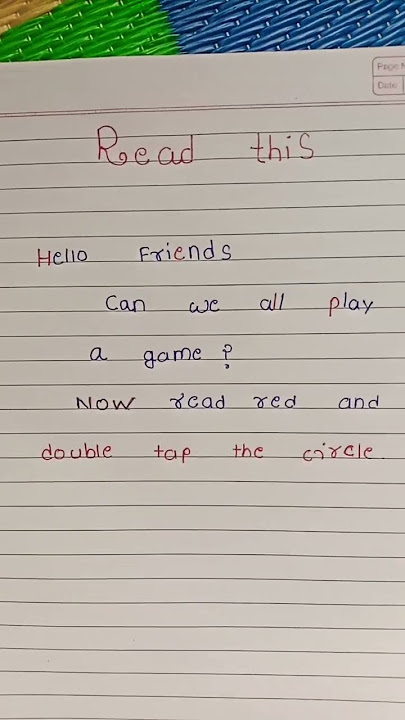 Page N
Date
Read this
Hello Friends
Can we all play
a game?
Now read red and
double tap the circle